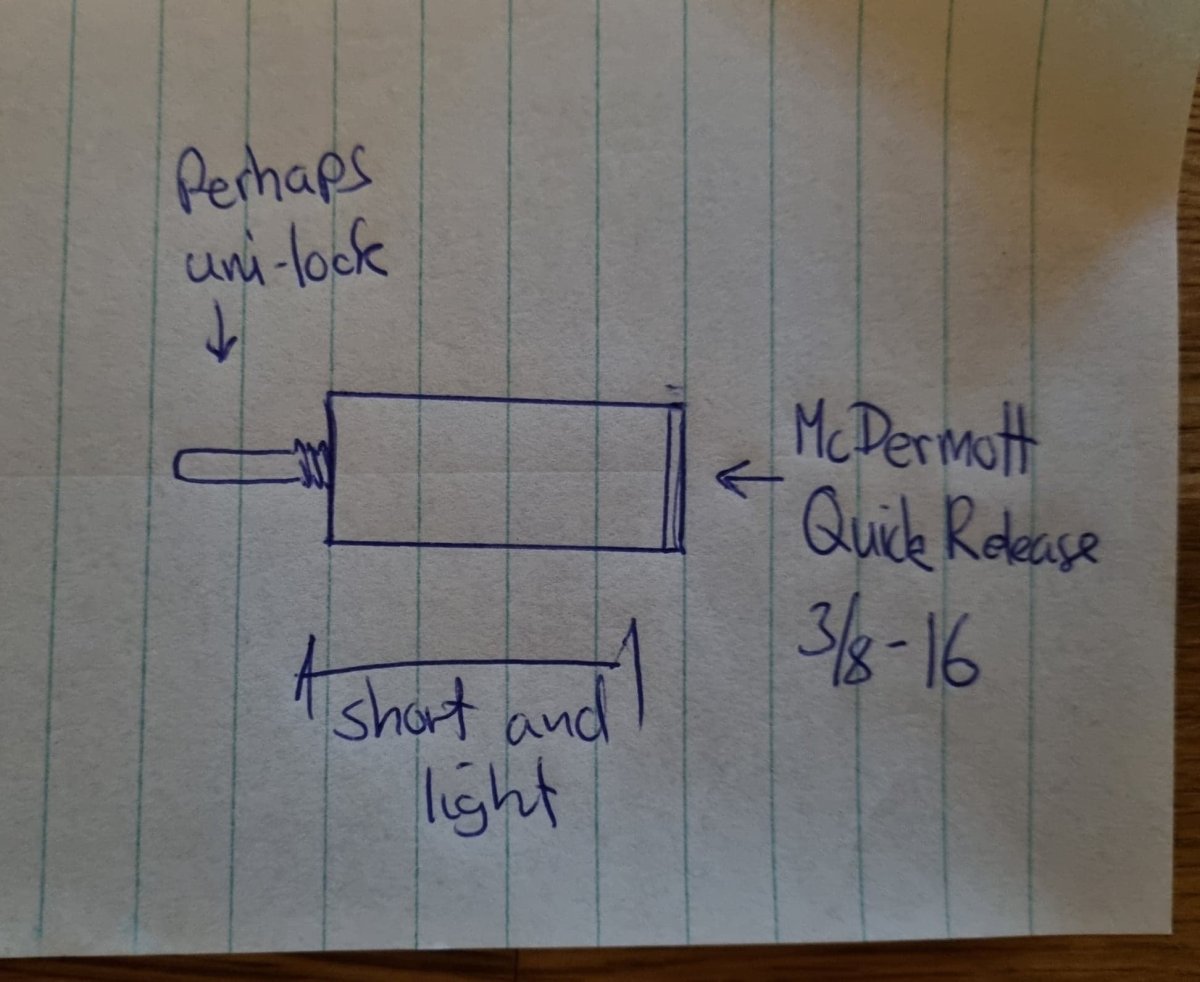 Perhaps
uni-lock
McDermott
Quick Release
3/8-16
short and
light